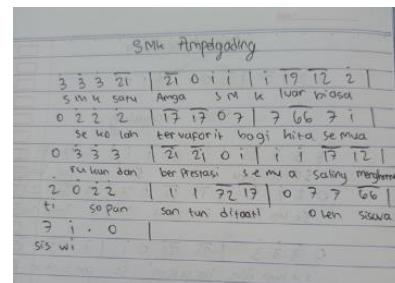 SMK Ampelgading
3 3 3 21 | 21 0 i i | i 19 12 2 |
SMK satu Amga SMK luar biasa
0 2 2 2 | 17 17 0 7 | 7 66 7 i |
se ko lah tervaforit bagi kita semua
0 3 3 3 | 21 21 0 i | i i 17 12 |
rukun dan ber prestasi semua saling menghorm
2 0 2 2 | 1 1 72 17 | 0 7 7 66 |
ti sopan san tun ditaati oleh siswa
7 i . 0 |
sis wi